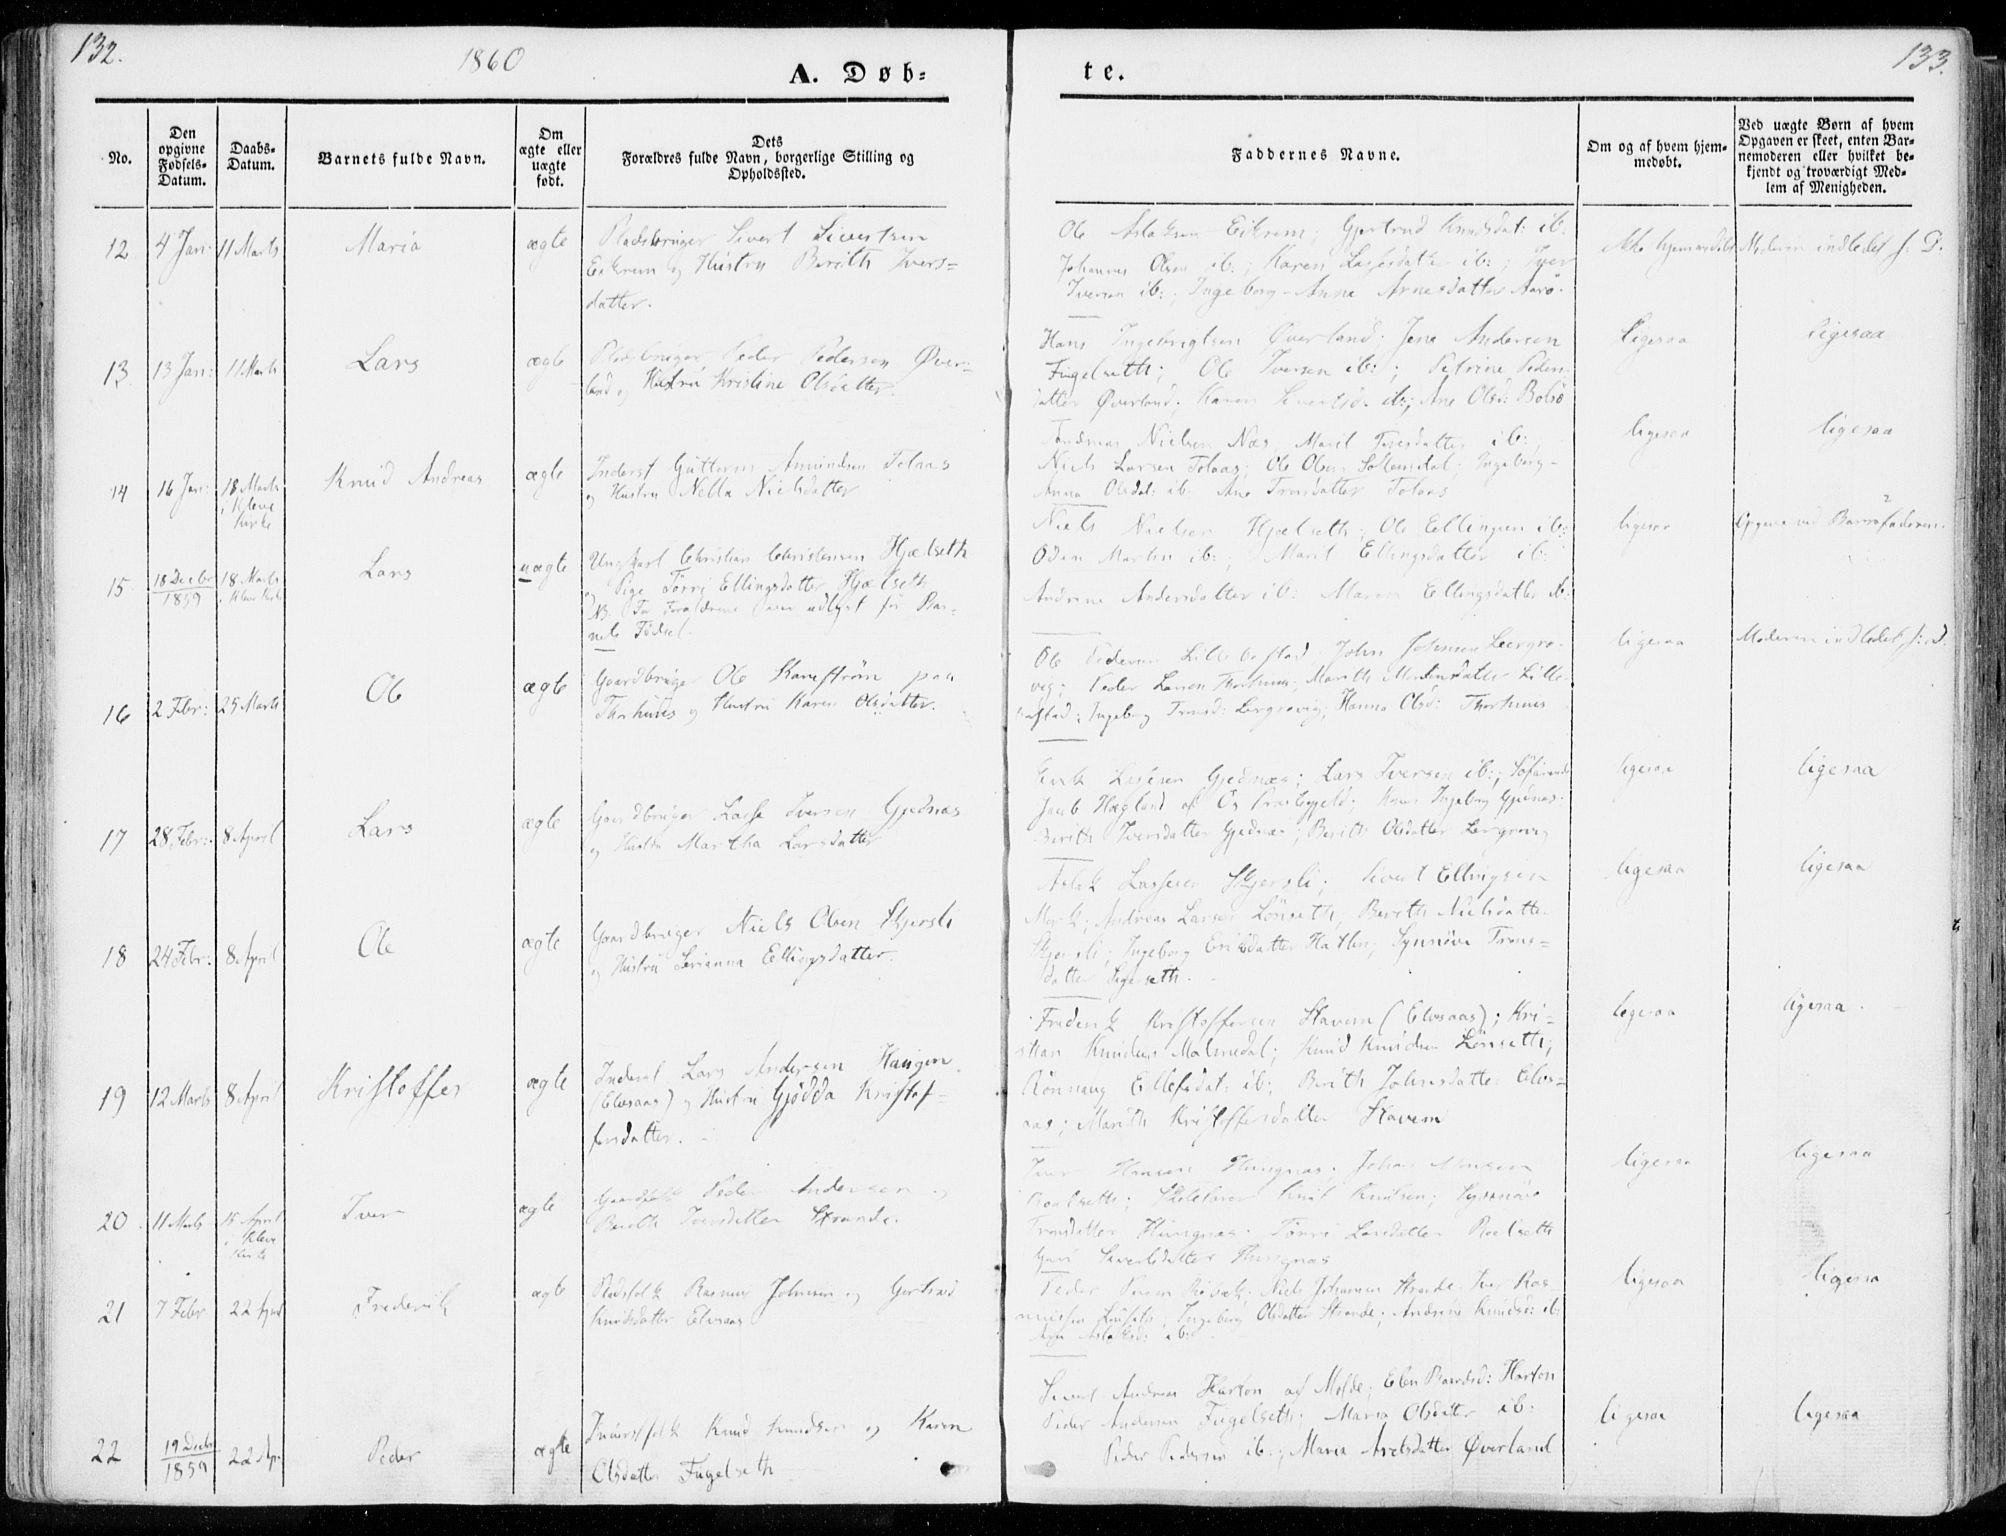 132.
1860
A. Døb-
te.
133.
No.
Den
opgivne
Fødsels-
Datum.
Daabs-
Datum.
Barnets fulde Navn.
Om
ægte eller
uægte
født.
Dets
Forældres fulde Navn, borgerlige Stilling og
Opholdssted.
Faddernes Navne.
Om og af hvem hjem-
medøbt.
Ved uægte Børn af hvem
Opgaven er skeet, enten Bar-
nemoderen eller hvilket be-
kjendt og troværdigt Med-
lem af Menigheden.
12
4 Jan:
11 Marts
Maria
ægte
Pladsbruger Sivert Sivertsen
Eikrem og Hustru Berith Ivers-
datter.
Ole Aslaksen Eikrem; Gjertrud Knudsdat: ib:
Johannes Olsen ib:; Karen Lassesdatter ib:; Iver
Iversen ib:; Ingeborg-Anna Arnesdatter Aarö.
ikke hjemmedöbt
Moderen indledet s: D.
13
13 Jan:
11 Marts
Lars
ægte
Pladsbruger Peder Pedersen Över-
land og Hustru Kristine Olsdatter.
Hans Ingebrigtsen Överland; Jens Andersen
Fugelseth; Ole Iversen ib:; Petrine Peders-
datter Överland; Karen Sivertsd: ib:; Ane Olsd: Bolsö
ligesaa
ligesaa
14
16 Jan:
18 Marts
i Kleve
Kirke
Knud Andreas
ægte
Inderst Guttorm Amundsen Tolaas
og Hustru Nella Nielsdatter
Nielsen Næs; Marit ib:
Niels Larsen Tolaas; Ole Olsen Sollemdal; Ingeborg-
Anna Olsdat: ib: Ane Tronsdatter Tolaas
ligesaa
ligesaa
15
18 Decbr
1859
18 Marts
i Kleve Kirke
Lars
uægte
Ungkarl Christian Christensen Hjælseth
og Pige Törri Ellingsdatter Hjælseth
NB. For Forældrene var udlyst før Bar-
nets Fødsel.
Niels Nielsen Hjælseth; Ole Ellingsen ib:
Martin ib:; Marit Ellingsdatter ib:
Andrine Andersdatter ib: Maren Ellingsdatter ib:
ligesaa
Opgivne ved Barnefaderen.
16
2 Febr:
25 Marts
Ole
ægte
Gaardbruger Ole Kanestrøm paa
Thorhuus og Hustru Karen Olsdatter.
Ole Pedersen Lillebostad; John Johnsen Leergro-
vig; Peder Larsen Thorhuus; Marith Mortensdatter Lille-
bostad; Ingeborg Tronsd: Lergrovig; Hanna Olsd: Thorhuus
ligesaa
Moderen indledet s: D.
17
28 Febr:
8 April
Lars
ægte
Gaardbruger Lasse Iversen Gjednæs
og Hustru Martha Larsdatter
Erik Gjednæs; Lars Iversen ib:;
Jacob Hægland af Præstegjeld; Ingeborg Gjednæs.
Berith Iversdatter Gjednæs; Berith Olsdatter Lergrovig
ligesaa
ligesaa
18
24 Febr:
8 April
Ole
ægte
Gaardbruger Niels Olsen Skjersli
og Hustru Serianna Ellingsdatter.
Aslak Lassesen Skjersli; Sivert Ellingsen
Mork; Andreas Larsen Lönseth; Berith Nielsdatter
Skjersli; Ingeborg Eriksdatter Hatlen; Synnöve Trons-
datter
ligesaa
ligesaa
19
12 Marts
8 April
Kristoffer
ægte
Inderst Lars Andersen Haugen
(Elvsaas) og Hustru Gjödda Kristof-
fersdatter.
Frederik Kristoffersen Stavem (Elvsaas); Kri-
stian Knudsen Malmedal; Knud Knudsen Lönseth;
Rönnaug Ellefsdat: ib:; Berith Johnsdatter Elvs-
aas; Marith Kristoffersdatter Stavem
ligesaa
ligesaa.
20
11 Marts
15 April
i Kleve
Kirke
Iver
ægte
Gaardfolk Peder Andersen og
Berith Iversdatter Strande.
Iver Hansen Hungnæs; Johan Monsen
Roalseth; Skolelærer Knut Knutsen; Synnöve
Tronsdatter Hungnæs; Törri Larsdatter Roelseth
Guri Sivertsdatter Hungnæs
ligesaa
ligesaa
21
7 Febr
22 April
Frederik
ægte
Pladsfolk Rasmus Johnsen og Gertrud
Knudsdatter Elvsaas
Peder Niels Johansen Strande; Iver Ras-
mussen Ingeborg Olsdatter Strande; Andrine Knudsd: ib:
Aslaksd: ib:
ligesaa
ligesaa
22
19 Decbr
1859
22 Apr.
Peder
ægte
Inderstfolk Knud Knudsen og Karen
Olsdatter Fugelseth
Sivert Andreas Harton af Molde; Elen Baardsd: Harton
Peder Andersen Fugelseth; Maria Olsdatter ib:
Peder Pedersen ib:; Maria Axelsdatter Överland
ligesaa
ligesaa